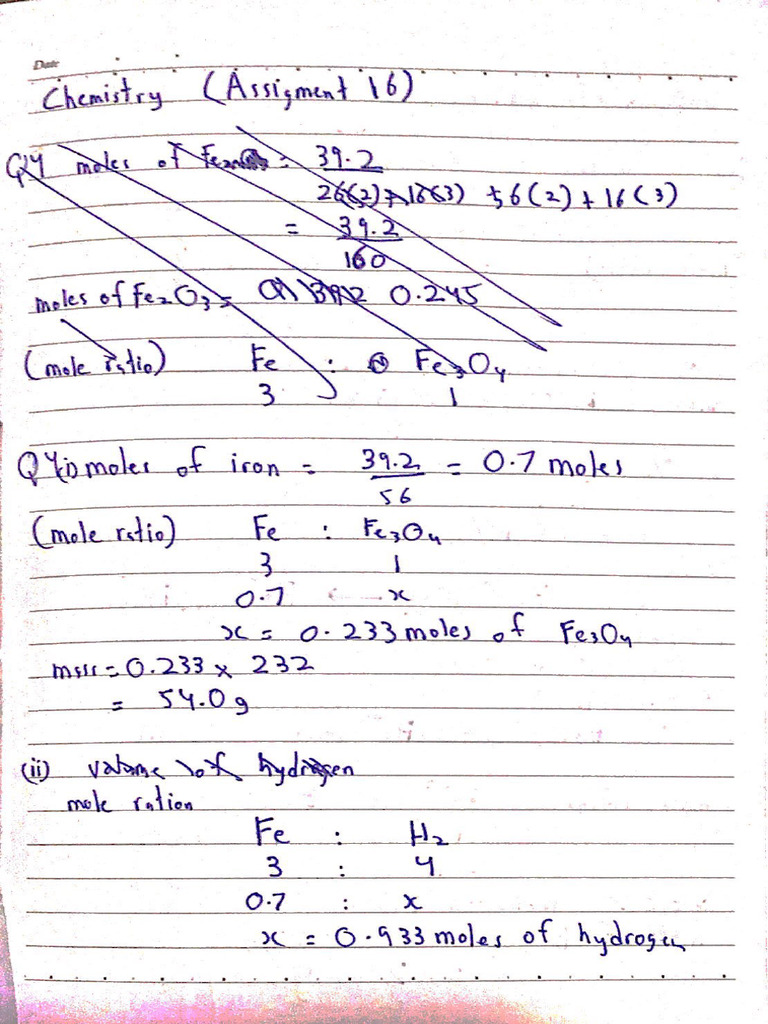 Date
Chemistry (Assigment 16)
Q4 moles of = 39.2
26(2)+16(3) 56(2)+16(3)
= 39.2
160
moles of Fe2O3 = 0.245
(mole ratio) Fe : Fe3O4
3 1
Q4(i) moles of iron = 39.2 = 0.7 moles
56
(mole ratio) Fe : Fe3O4
3 1
0.7 x
x = 0.233 moles of Fe3O4
mass = 0.233 x 232
= 54.0 g
(ii) volume of hydrogen
mole ration
Fe : H2
3 : 4
0.7 : x
x = 0.933 moles of hydrogen